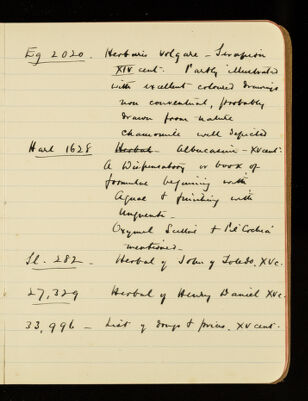 Eg 2020. Herbario volgare - Serapion
XIV cent. Partly illustrated
with excellent coloured drawings
non conventional, probably
drawn from nature
Chamomile well depicted
Harl 1628 Herbal - Albucasim - XV cent.
A Dispensatory or book of
formulae beginning with
Aquae & finishing with
Unguents -
Oxymel Scillae & Pil Cochia
mentioned -
Sl. 282 - Herbal of John of Toledo. XVc.
27,329 Herbal of Henry Daniel XVc.
33,996 - List of drugs & XV cent.